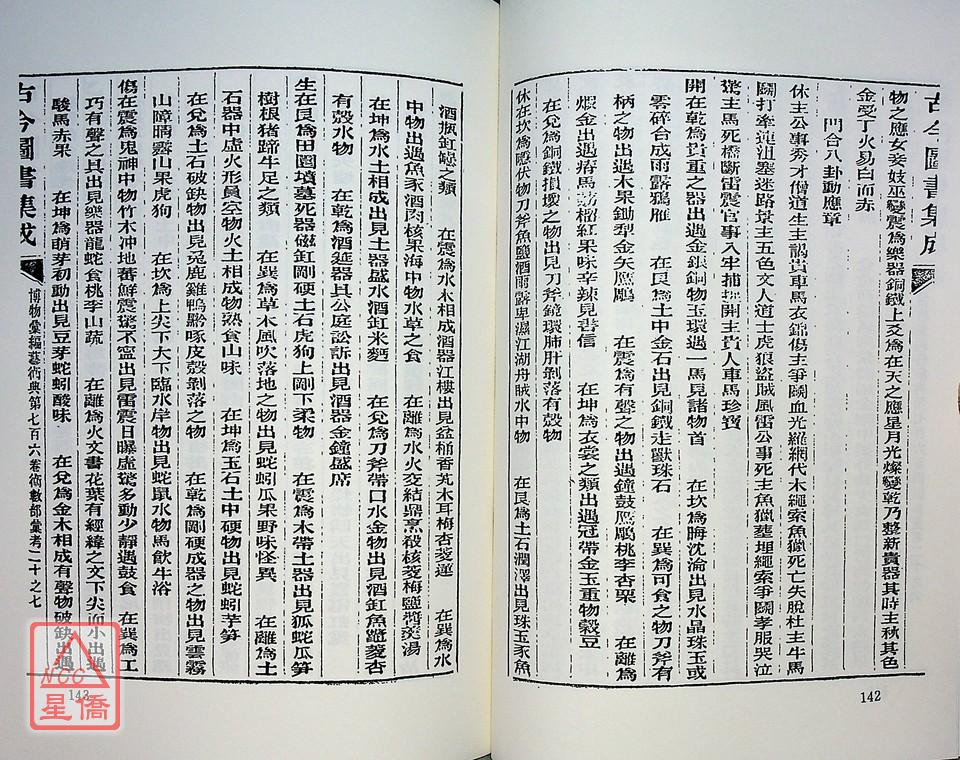 古今圖書集成
物之應女妾妓巫變震爲樂器銅鐵上爻爲在天之應星月光燦變乾乃整新貴器其時主秋其色
金受丁火易白而赤
門合八卦動應章
休主公事秀才僧道生主謁貴車馬衣錦傷主爭鬭血光羅網代木繩索魚獵死亡失脫杜主牛馬
鬭打牽連沮塞迷路景主五色文人道士虎狼盜賊風雷公事死主魚獵葬埋繩索爭鬭孝服哭泣
驚主馬死橋斷雷震官事入牢捕捉開主貴人車馬珍寶
開在乾爲貴重之器出見金銀銅物玉環遇一馬見諸物首 在坎爲晦沈淪出見水晶珠玉或
零碎合成雨露鴉雁 在艮爲土中金石出見銅鐵走獸珠石 在巽爲可食之物刀斧有
柄之物出遇木果鋤犁金矢鷹鵰 在震爲有聲之物出遇鐘鼓鷹鵰桃李杏栗 在離爲
煆金出遇瘠馬 榴紅果味辛辣見書信 在坤爲衣裳之類出遇冠帶金玉重物穀豆
在兌爲銅鐵損壞之物出見刀斧鏡環肺肝剝落有殼物
休在坎爲隱伏物刀斧魚鹽酒雨露卑濕江湖舟賊水中物 在艮爲土石潤澤出見珠玉家魚
142
酒瓶缸罎之類 在震爲水木相成酒器江樓出見盆桶香瓦木耳梅杏菱蓮 在巽爲水
中物出遇魚家酒肉核果海中物水草之食 在離爲水火交結鼎烹殽核菱梅鹽醬羹湯
在坤爲水土相成出見土器盛水酒缸米麪 在兌爲刀斧帶口水金物出見酒缸魚蹠菱杏
有殼水物 在乾爲酒筵器具公庭訟訴出見酒器金鐘盛席
生在艮爲田園墳墓死器磁缸剛硬土石虎狗上剛下柔物 在震爲木帶土器出見狐蛇瓜笋
樹根猪蹄牛足之類 在巽爲草木風吹落地之物出見蛇蚓瓜果野味怪異 在離爲土
石器中虛火形員空物火土相成物熟食山味 在坤爲玉石土中硬物出見蛇蚓芋笋
在兌爲土石破缺物出見兔鹿雞鴨黔啄皮殼剝落之物 在乾爲剛硬成器之物出見雲霧
山障晴霽山果虎狗 在坎爲上尖下大下臨水岸物出見蛇鼠水物馬飲牛浴
傷在震爲鬼神中物竹木冲地蕃鮮震驚不寍出見雷震日曝虛驚多動少靜遇鼓食 在巽爲工
巧有聲之具出見樂器龍蛇食桃李山蔬 在離爲火文書花葉有經緯之文下尖而小出遇
駿馬赤果 在坤爲萌芽初動出見豆芽蛇蚓酸味 在兌爲金木相成有聲物破缺出遇
古今圖書集成
博物彙編藝術典第七百六卷術數部彙考二十之七
143
NCC
星僑